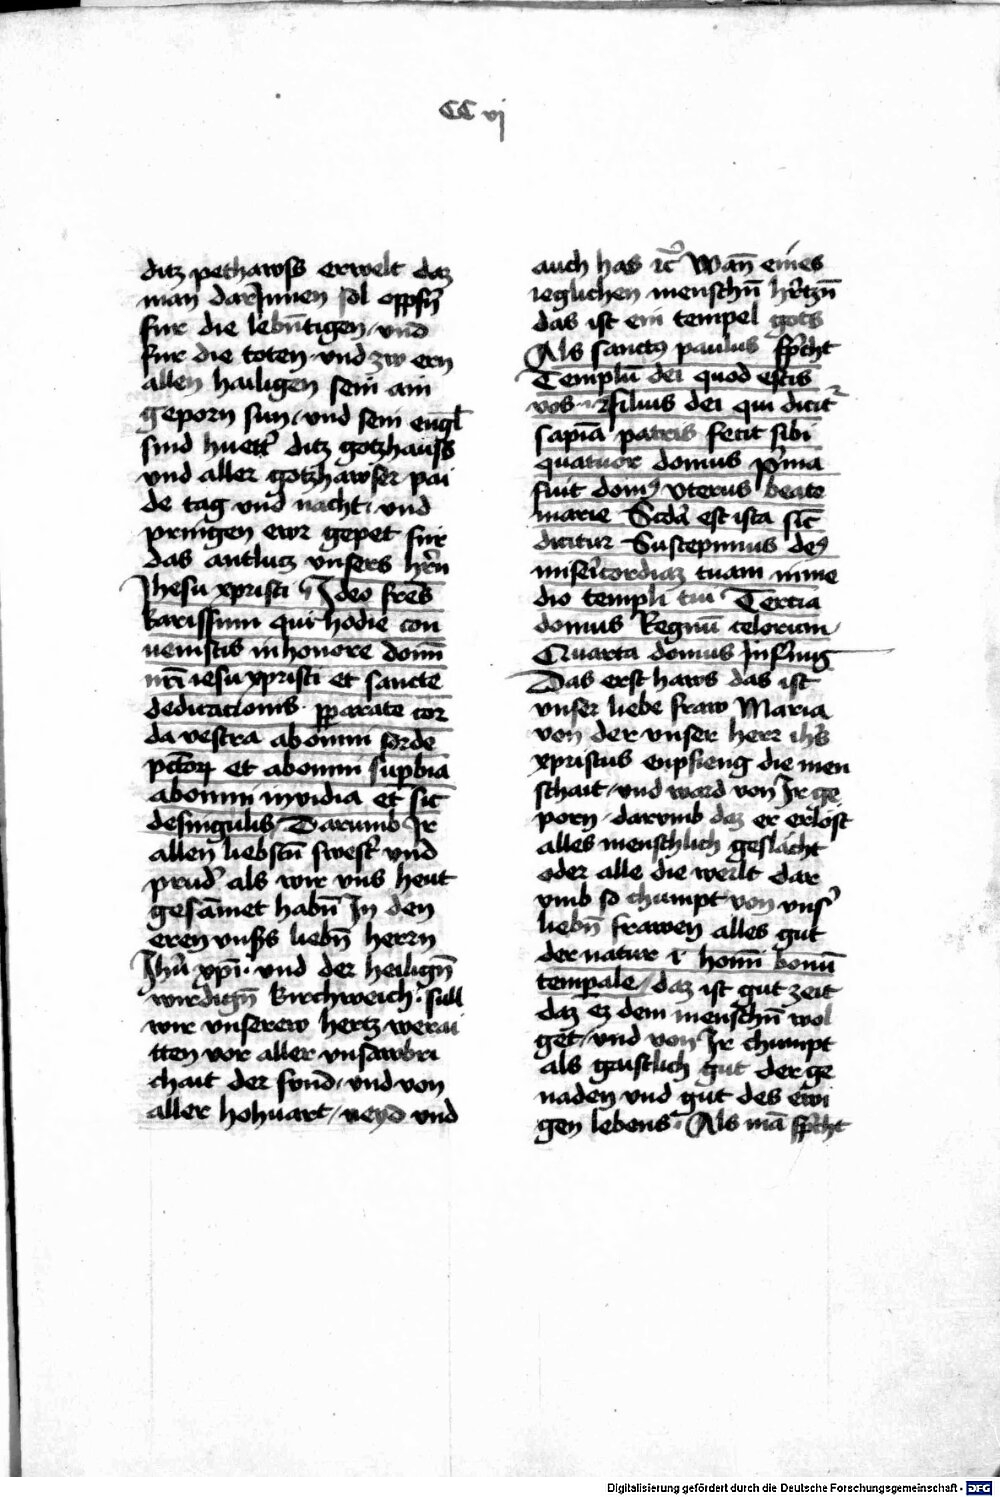 CC vj
ditz pethawss erwelt daz
man darJnnen sol oppfn̄
fur die lebn̄tigen / und
fur die toten und zw ern
allen hailigen sein ain
geporn sun / und sein engl
sind huett ditz gotzhauss
und aller gotzhawser pai
de tag und nacht / und
pringen ewr gepet fur
das antlutz vnsers hr̄n
Jhesu xpristi Ideo fres
karissimi qui hodie con
uenistis in honore domī
nr̄i iesu xpristi et sancte
dedicationis · pparate cor
da vestra ab omni sorde
pctōr et ab omni supbia
ab omni inuidia et sic
de singulis / Darumb Jr
allen liebstn̄ swest' und
prud' als wir vns heut
gesāmet habn̄ In den
eren vnss liebn̄ herrn
Jhū xpī · vnd der heilign̄
wirdign̄ kirchweich · sull
wir vnserew hertz werai
tten vor aller vnsawbri
chait der sund / und von
aller hohuart / neyd vnd
auch has ic̄ Wan̄ eines
ieglichen menschn̄ hr̄tzn̄
das ist ein tempel gots
Als sanctꝰ paulus spcht
Templū dei quod estis
vos · filius dei qui dicit'
sapīa patris fecit sibi
quatuor domus p'ma
fuit domꝰ vterus beate
marie Scdā est ista sic̄
dicitur Suscepimus deꝰ
miser̄icordiaz tuam in me
dio templi tui Tertia
domus Regnū celorum /
Quarta domus Infernꝰ
Das erst haws das ist
vnser liebe fraw Maria
von der vnser herr ihs̄
xpristus enpfieng die men
schait / und ward von Jr ge
porn / darumb daz er erlöst
alles menschlich geslächt
oder alle die werlt dar
vmb so chumpt von vns'
liebn̄ frawen alles gut
der natur i homī bonū
tempale / daz ist gut zeit
daz ez dem menschn̄ wol
get / und von Jr chumpt
als gaistlich gut der ge
naden und gut des ewi
gen lebens · Als mā spcht
Digitalisierung gefördert durch die Deutsche Forschungsgemeinschaft - DFG